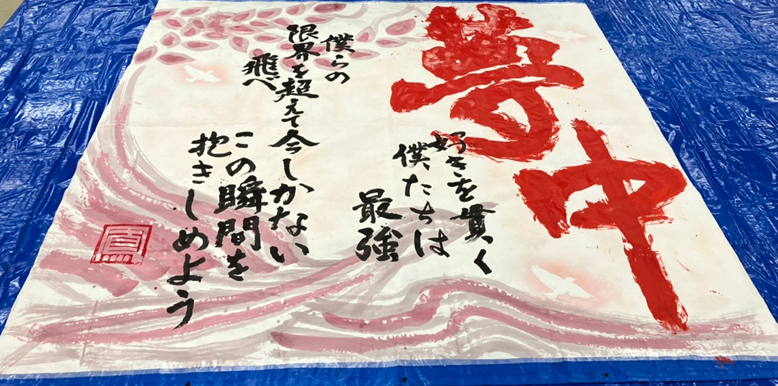 夢中
好きを貫く
僕たちは
最強
僕らの
限界を超えて今しかない
飛べ
この瞬間を
抱きしめよう